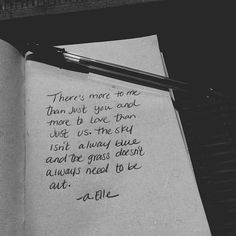 There's more to me
than just you and
more to love than
just us. the sky
isn't always blue
and the grass doesn't
always need to be
cut.
-a.Elle